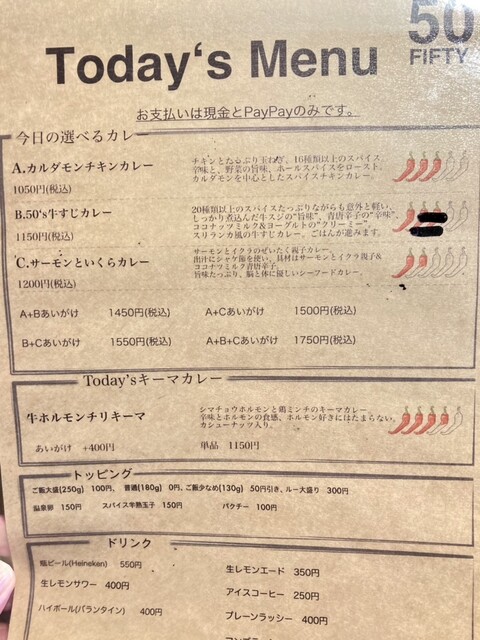 50
FIFTY
Today's Menu
お支払いは現金とPayPayのみです。
今日の選べるカレー
A.カルダモンチキンカレー
1050円(税込)
チキンとたっぷり玉ねぎ、16種類以上のスパイス
辛味と、野菜の旨味、ホールスパイスをロースト、
カルダモンを中心としたスパイスチキンカレー。
B.50's牛すじカレー
1150円(税込)
20種類以上のスパイスたっぷりながらも意外と軽い、
しっかり煮込んだ牛スジの"旨味"、青唐辛子の"辛味"、
ココナッツミルク&ヨーグルトの"クリーミー"
スリランカ風の牛すじカレー。ごはんが進みます。
C.サーモンといくらカレー
1200円(税込)
サーモンとイクラのぜいたく親子カレー。
出汁にシャケ節を使い、具材はサーモンとイクラ親子&
ココナツミルク青唐辛子。
旨味たっぷり、脳と体に優しいシーフードカレー。
A+Bあいがけ 1450円(税込) A+Cあいがけ 1500円(税込)
B+Cあいがけ 1550円(税込) A+B+Cあいがけ 1750円(税込)
Today'sキーマカレー
牛ホルモンチリキーマ
シマチョウホルモンと鶏ミンチのキーマカレー。
辛味とホルモンの食感、ホルモン好きにはたまらない。
カシューナッツ入り。
あいがけ +400円 単品 1150円
トッピング
ご飯大盛(250g) 100円、普通(180g) 0円、ご飯少なめ(130g) 50円引き、ルー大盛り 300円
温泉卵 150円 スパイス半熟玉子 150円 パクチー 100円
ドリンク
瓶ビール(Heineken) 550円
生レモンサワー 400円
ハイボール(バランタイン) 400円
生レモンエード 350円
アイスコーヒー 250円
プレーンラッシー 400円